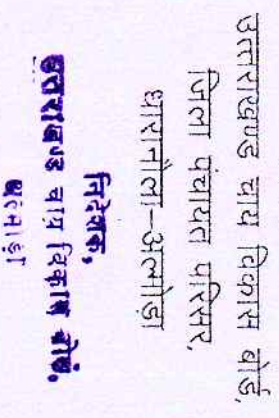 उत्तराखण्ड चाय विकास बोर्ड,
जिला पंचायत परिसर,
धारानौला-अल्मोड़ा
निदेशक,
उत्तराखण्ड चाय विकास बोर्ड,
अल्मोड़ा